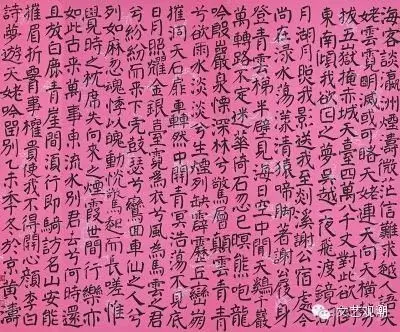 海客談瀛洲煙濤微茫信難求越人語天
姥雲霓明滅或可睹天姥連天向天橫
拔五嶽掩赤城天臺四萬八千丈對此
東南傾我欲因之夢吳越一夜飛渡鏡
月湖月照我影送我至剡溪謝公宿處今
尚在淥水蕩漾清猿啼腳著謝公屐身
登青雲梯半壁見海日空中聞天雞千巖
萬轉路不定迷花倚石忽已暝熊咆龍
吟殷巖泉慄深林兮驚層巔雲青青
兮欲雨水淡淡兮生煙列缺霹靂丘巒崩
摧洞天石扉訇然中開青冥浩蕩不見底
日月照耀金銀臺霓為衣兮風為馬雲之君
兮紛紛而來下虎鼓瑟兮鸞回車仙之人兮
列如麻忽魂悸以魄動怳驚起而長嗟惟
覺時之枕席失向來之煙霞世間行樂亦
如此古來萬事東流水別君去兮何時還
且放白鹿青崖間須行即騎訪名山安能
摧眉折腰事權貴使我不得開心顏李白
詩夢遊天姥吟留別乙未季冬於京黃壽
文艺观潮